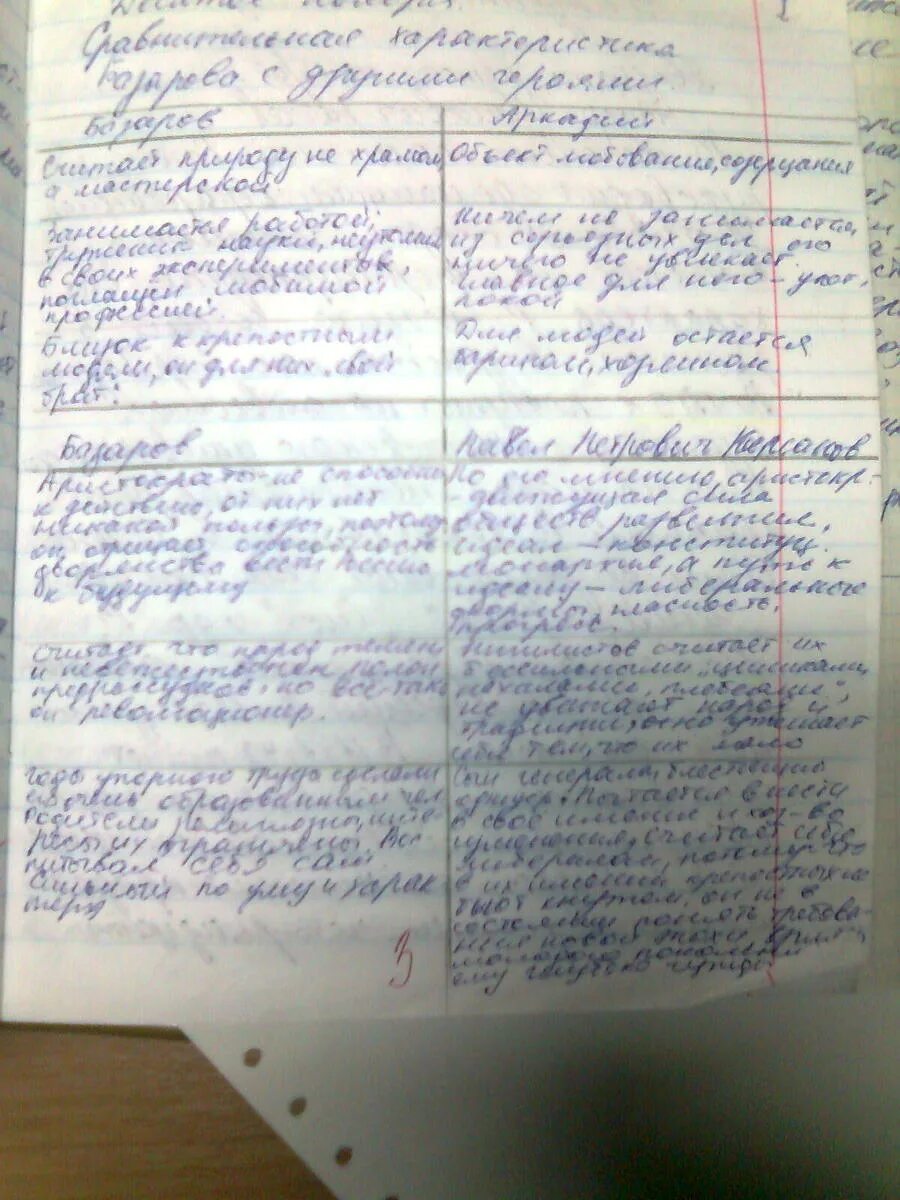 Десятое ноября.
Сравнительная характеристика
Базарова с другими героями.
Базаров
Аркадий
Считает природу не храмом,
а мастерской
Объект любования, созерцания
Занимается работой,
труженик науки, неутомим
в своих экспериментах,
поглощен любимой
профессией.
Ничем не занимается,
из серьезных дел его
ничего не увлекает.
главное для него - уют,
покой
Близок к крепостным
людям, он для них "свой
брат".
Для людей остается
барином, хозяином
Базаров
Павел Петрович Кирсанов
Аристократы не способны
к действию, от них нет
никакой пользы, поэтому
он отрицает способность
дворянства вести Россию
к будущему
По его мнению, аристокр.
- движущая сила
обществ. развития,
идеал - конституц.
монархия, а путь к
идеалу - либерального
гласность,
прогресс.
Считает что народ темен
и невежественен, полон
предрассудков, но все-таки
он революционер.
Нигилистов считает их
бессильными "циниками,
нахалами, плебеями",
не уважают народ и
традиции, но утешает
себя тем, что их мало
Годы упорного труда сделали
его очень образованным чел
родители религиозны, инте-
ресы их ограничены. Вос-
питывал себя сам.
Сильный по уму и харак
теру
Сын генерала, блестящая
карьера. Пытается внести
в свое имение и хоз-во
изменения, считает себя
либералом, потому что
в их имении крепостных не
бьют кнутом, он не в
состоянии понять требова-
ния новой эпохи,
молодого поколения
ему глубоко чужды
3